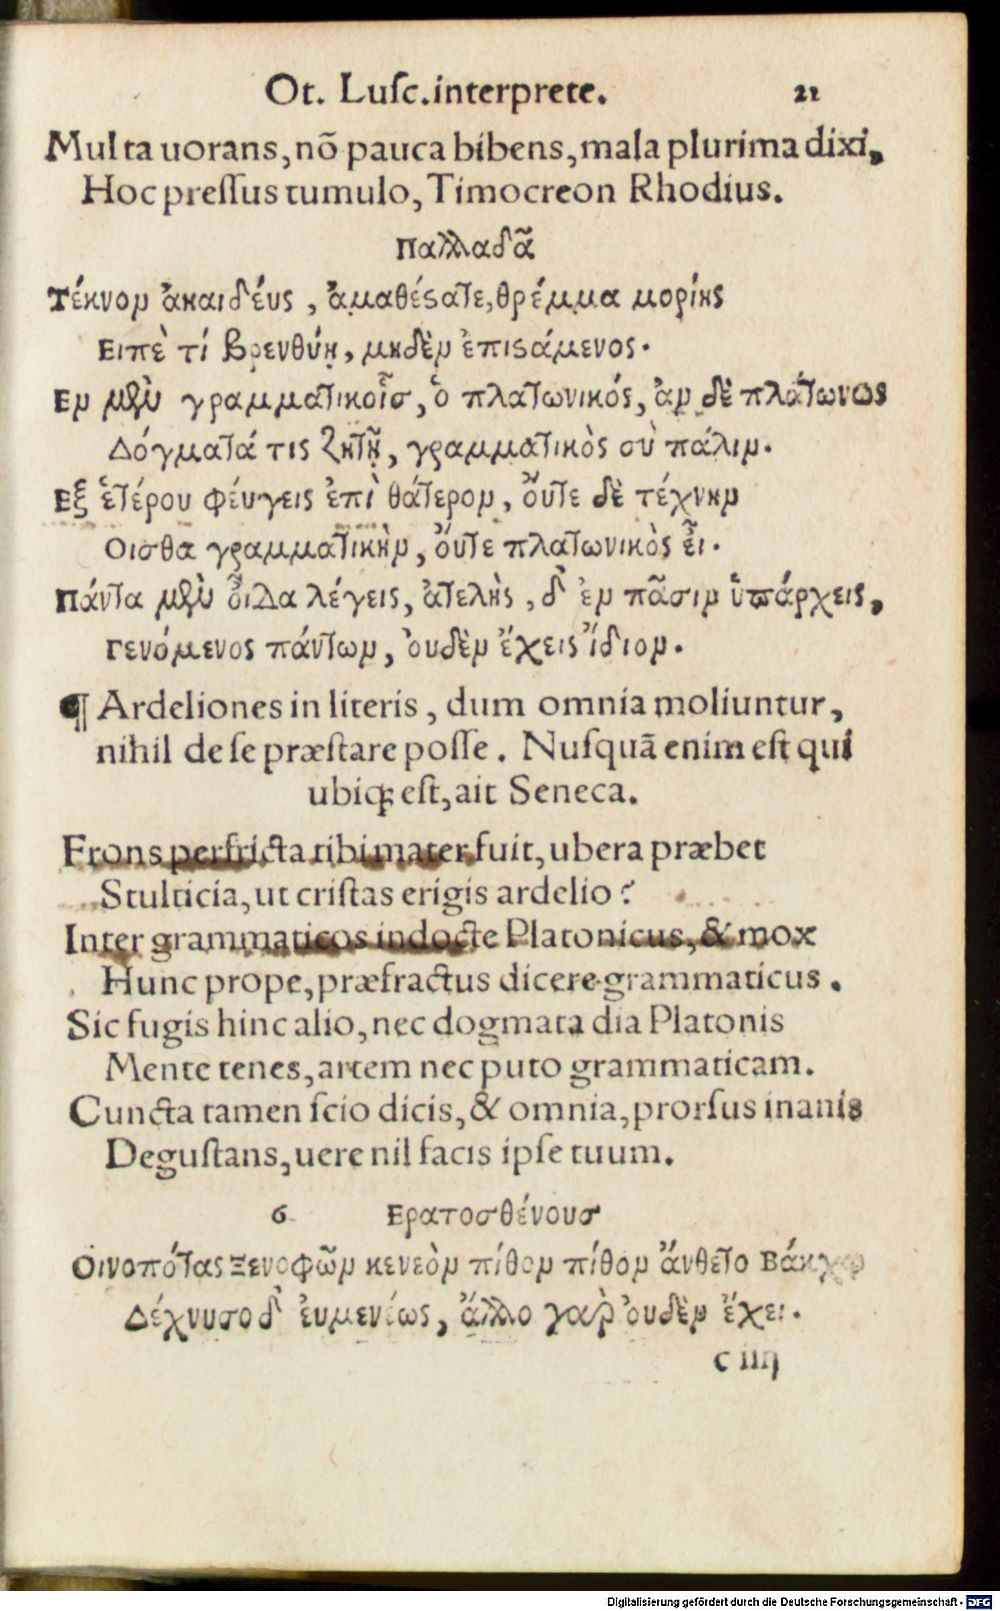 Ot. Luſc. interprete. 21
Multa uorans, nõ pauca bibens, mala plurima dixi,
Hoc preſſus tumulo, Timocreon Rhodius.
Παλλαδᾶ
Τέκνον ἀναιδέυς, ἀμαθέϛατε, θρέμμα μορίης
Ειπὲ τί βρενθύῃ, μηδὲν ἐπιϛάμενος.
Εν μὲν γραμματικοῖσ, ὁ πλατωνικός, ἀν δὲ πλάτωνος
Δόγματά τις ζητῇ, γραμματικὸς σὺ πάλιν.
Εξ ἑτέρου φέυγεις ἐπὶ θάτερον, οὔτε δὲ τέχνην
Οισθα γραμματικὴν, ὄυτε πλατωνικὸς εἶ.
Πάντα μὲν οἶδα λέγεις, ἀτελὴς, δ' ἐν πᾶσιν ὑπάρχεις,
Γενόμενος πάντων, ὀυδὲν ἔχεις ἴδιον.
¶ Ardeliones in literis, dum omnia moliuntur,
nihil de ſe præſtare poſſe. Nuſquã enim eſt qui
ubiq; eſt, ait Seneca.
Frons perfricta tibi mater fuit, ubera præbet
Stulticia, ut criſtas erigis ardelio?
Inter grammaticos indocte Platonicus, & mox
Hunc prope, præfractus dicere grammaticus.
Sic fugis hinc alio, nec dogmata dia Platonis
Mente tenes, artem nec puto grammaticam.
Cuncta tamen ſcio dicis, & omnia, prorſus inanis
Deguſtans, uere nil facis ipſe tuum.
6 Ερατοσθένουσ
Οινοπότας Ξενοφῶν κενεὸν πίθον πίθον ἄνθετο Βάκχῳ
Δέχνυσο δ' ἐυμενέως, ἄλλο γὰρ ὀυδὲν ἔχει.
c iiij
Digitalisierung gefördert durch die Deutsche Forschungsgemeinschaft - DFG